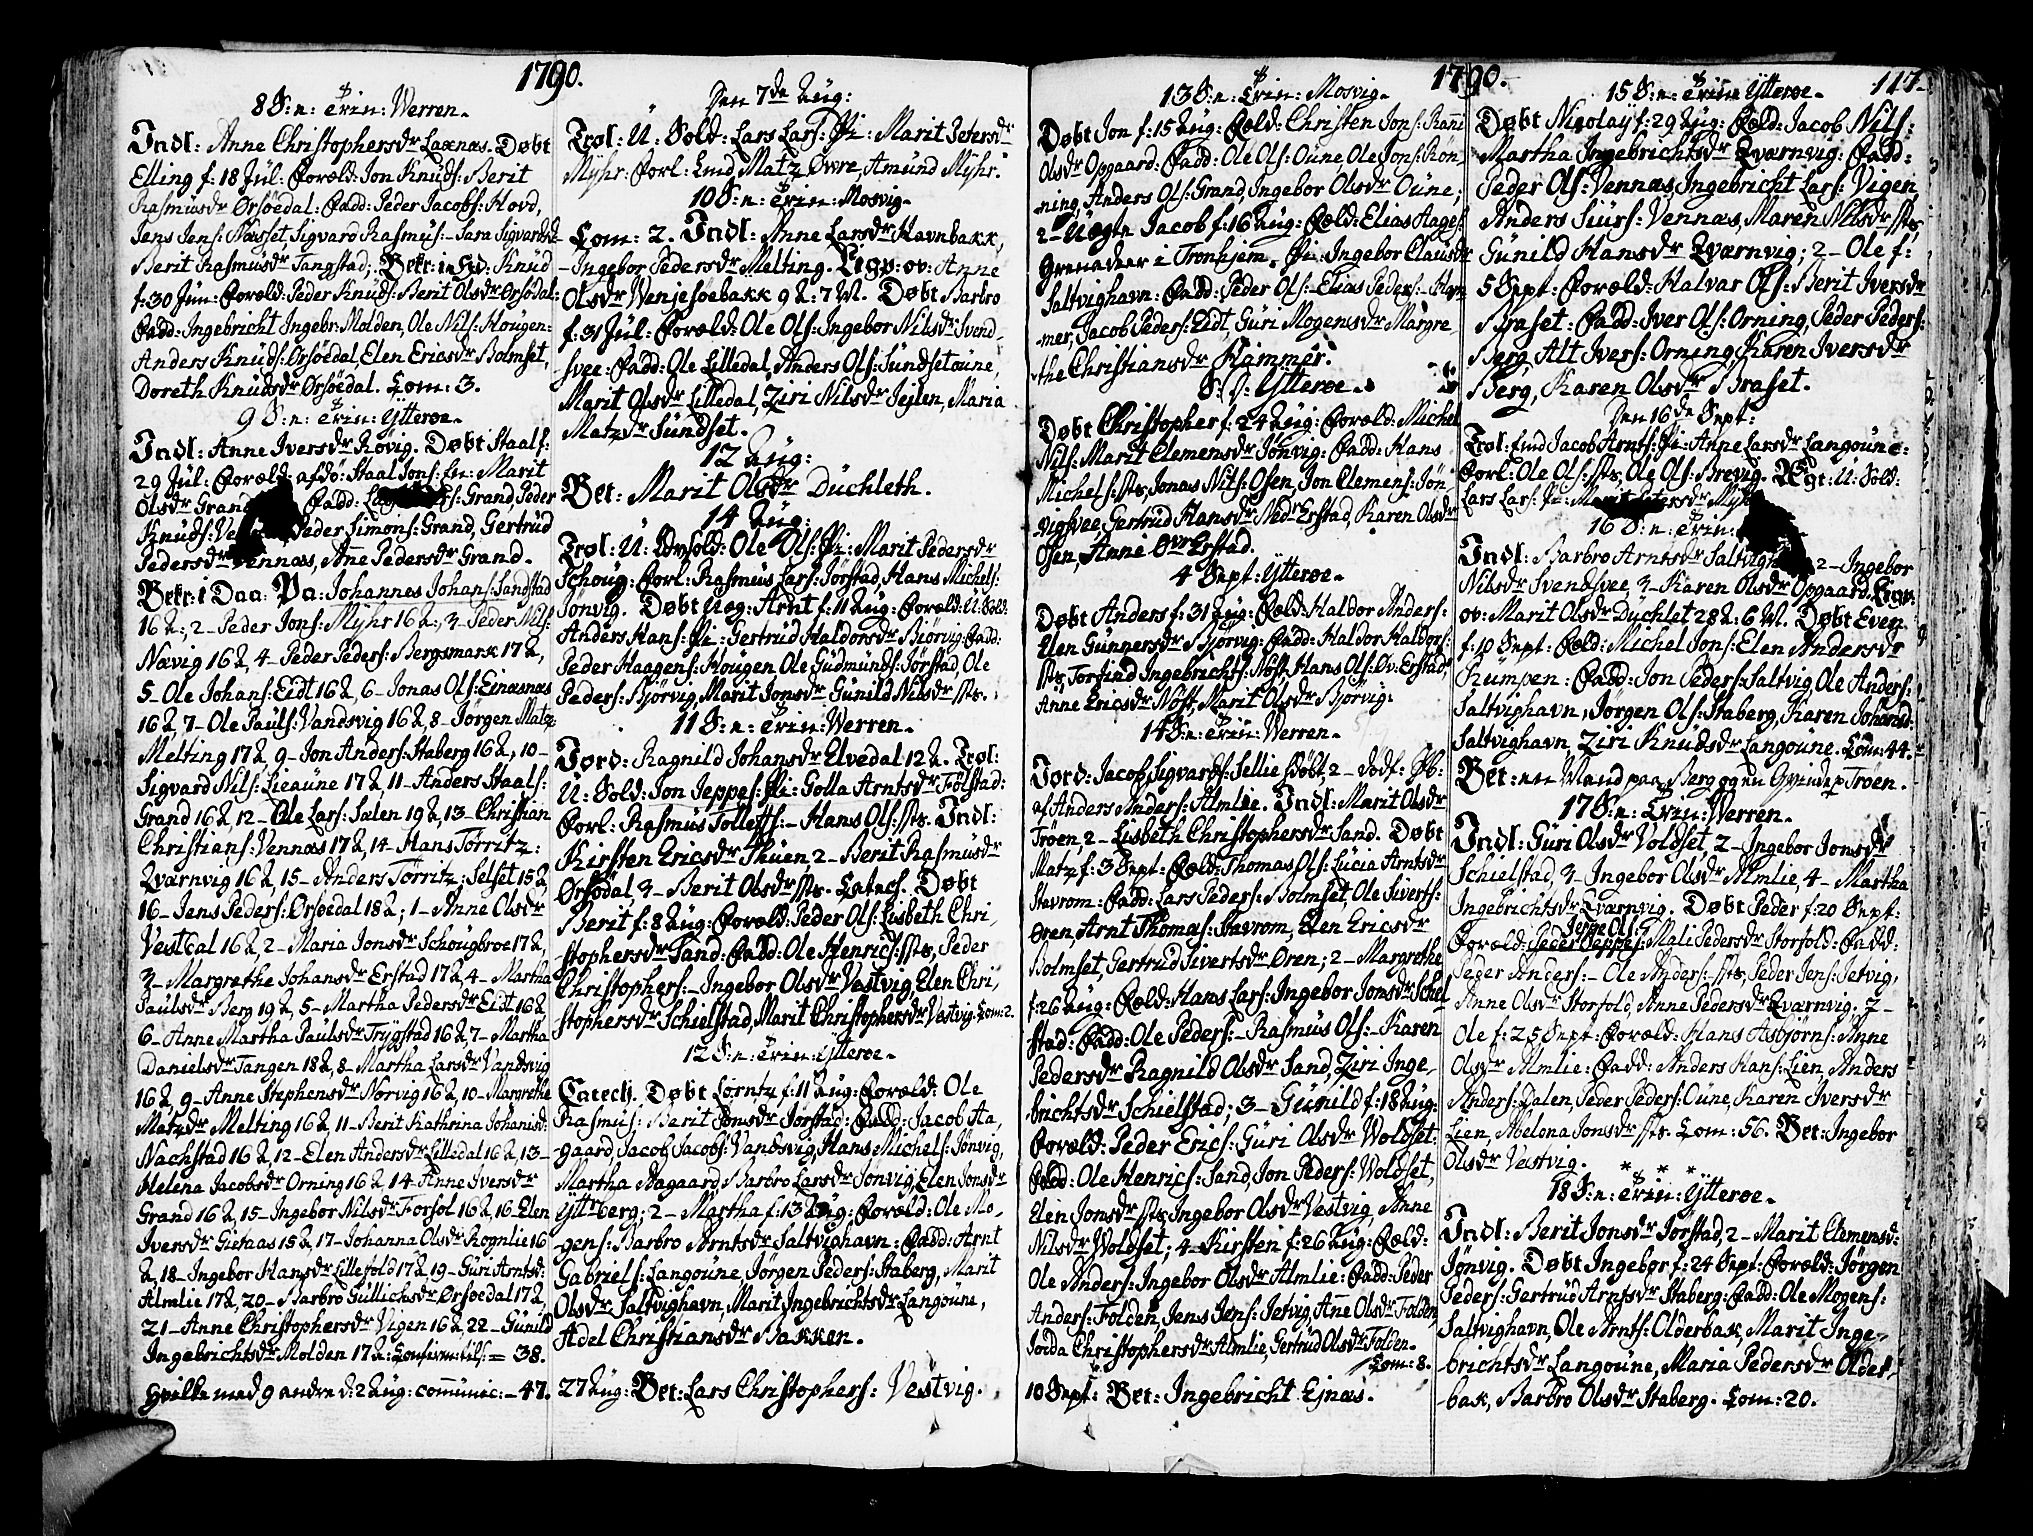 1790.
8 S: n: Trin: Werren.
Indl: Anne Christophersdr Laxnæs. Døbt
Elling f: 18 Jul: Foræld: Jon Knuds: Berit
Rasmusdr Ørsøedal: Fadd: Peder Jacobs: Hovd,
Jens Jens: Næsset, Sigvard Rasmus:- Sara Sigvardsd
Berit Rasmusdr Tangstad, Bekr: in Knud
f: 30 Jun: Foræld: Peder Knuds: Berit Olsdr Ørsødal:
Fadd: Ingebricht Ingebr: Molden, Ole Nils: Hougen:
Anders Knuds: Ørsøedal, Elen Ericsdr Bolmset,
Doreth Knudsdr Ørsøedal. Com: 3.
9 S: n: Trin: Ytterøe.
Indl: Anne Iversdr Røvig. Døbt Staal f:
29 Jul: Foræld: afdø: Staal Jons: Marit
Olsdr Grand Fadd: Grand, Peder
Knuds: Peder Simons: Grand, Gertrud
Pedersdr Vennæs, Anne Pedersdr Grand.
Bekr: i Daa: Pa: Johannes Johans: Sandstad
16 2:, 2- Peder Jons: Myhr 16 2:, 3- Peder Nils:
Nævig 16 2, 4- Peder Peders: Bergsmark 17 2,
5- Ole Johans: Eidt 16 2, 6- Jonas Ols: Einæsnæs
16 2, 7- Ole Pauls: Vandsvig 16 2, 8- Jørgen Matz,
Melting 17 2, 9- Jon Anders: Staberg 16 2, 10-
Sigvard Nils: Lieaune 17 2, 11- Anders Staals:
Grand 16 2, 12- Ole Lars: Salen 19 2, 13- Christian
Christians: Vennæs 17 2, 14- Hans Tørritz:
Qværnvig 16 2, 15- Anders Tørritz: Selset 15 2,
16- Jens Peders: Ørsøedal 18 2; 1- Anne Olsdr
Vestdal 16 2, 2- Maria Jonsdr Schougbroe 17 2,
3- Margrethe Johansdr Erstad 17 2, 4- Martha
Paulsdr Berg 19 2, 5- Martha Pedersdr Eidt 16 2
6- Anne Martha Paulsdr Trygstad 16 2, 7- Martha
Danielsdr Tangen 18 2, 8- Martha Larsdr Vandsvig
16 2, 9- Anne Stephensdr Norvig 16 2, 10- Margrethe
Matzdr Melting 16 2, 11- Berit Kathrina Johansd:
Nachstad 16 2, 12- Elen Andersdr Lilledal 16 2, 13-
Helena Jacobsdr Orning 16 2, 14- Anne Iversdr
Grand 16 2, 15- Ingebor Nilsdr Forsol 16 2, 16- Elen
Iversdr Gietaas 15 2, 17- Johanna Olsdr Rognlie 16
2, 18- Ingebor Hansdr Lillefold 17 2, 19- Guri Arntsd:
Almlie 17 2, 20- Barbro Gullichsdr Ørsøedal 17 2,
21- Anne Christophersdr Vigen 16 2, 22- Gunild
Ingebrichtsdr Molden 17 2: = 38.
hvilke med 9 andre d: 2 Aug: communic:- 47.
Den 7de Aug:
Trol: U: Sold: Lars Lars: Pi: Marit Petersdr
Myhr: Forl: Matz Øvre, Amund Myhr.
10 S: n: Trin: Mosvig.
Com: 2. Indl: Anne Larsdr Havnbakk,
- Ingebor Pedersdr Melting. Anne
Olsdr Venjesøebakk 9 2: 7 M. Døbt Barbro
f: 31 Jul: Foræld: Ole Ols: Ingebor Nilsdr Svend-
svee: Fadd: Ole Lilledal, Anders Ols: Sundsetøune,
Marit Olsdr Lilledal, Ziri Nilsdr Jejlen, Maria
Matzdr Sundset.
12 Aug:
Bet: Marit Olsdr Duchleth.
14 Aug:
Trol: U: Sold: Ole Ols: Pi: Marit Pedersdr
Schoug: Forl: Rasmus Lars: Jørstad, Hans Michels:
Jønvig. Døbt Uæg: Arnt f: 11 Aug: Foræld: U: Sold:
Anders Hans: Pi: Gertrud Haldorsdr Biørvig: Fadd:
Peder Haagens: Hougen, Ole Gudmunds: Jørstad, Ole
Peders: Biørvig, Marit Jonsdr Gunild Nilsdr sts.
11 S: n: Trin: Werren.
Jord: Ragnild Johansdr Elvedal 12 2. Trol:
U: Sold: Jon Jeppes: Pi: Golla Arntsdr Følstad:
Forl: Rasmus Tolleffs:- Hans Ols: sts. Indl:
Kirsten Ericsdr Thuen 2- Berit Rasmusdr
Ørsødal, 3- Berit Olsdr sts. Catech. Døbt
Berit f: 8 Aug: Foræld: Peder Ols: Lisbeth Chri-
stophersdr Sand: Fadd: Ole Henrics: sts, Peder
Christophers:- Ingebor Olsdr Vestvig, Elen Chri-
stophersdr Schielstad, Marit Christophersdr Vestvig. Com: 2.
12 S: n: Trin: Ytterøe.
Catech. Døbt Lorntz f: 11 Aug: Foræld: Ole
Rasmus: Berit Jonsdr Jørstad: Fadd: Jacob Aa-
gaard, Jacob Jacobs: Vandsvig, Hans Michels: Jønvig,
Martha Aagaard, Barbro Larsdr Jønvig, Elen Jonsdr
Yttrberg; 2- Martha f: 13 Aug: Foræld: Ole Mo-
gens: Barbro Arntsdr Saltvighavn: Fadd: Arnt
Gabriels: Langøune, Jørgen Peders: Staberg, Marit
Olsdr Saltvighavn, Marit Ingebrichtsdr Langøune,
Adel Christiansdr Bakken.
27 Aug: Bet: Lars Christophers: Vestvig.
1790. 117.
13 S: n: Trin: Mosvig.
Døbt Jon f: 15 Aug: Foæld: Christen Jons: Rani
Olsdr Opgaard: Fadd: Ole Ols: Oune, Ole Jons: Røn-
ning, Anders Ols: Grand, Ingebor Olsdr Oune;
2- Uægtn Jacob f: 16 Aug: Foæld: Elias Aages:
Grenadeer i Tronhjem, Pi: Ingebor Clausdr
Saltvighavn: Fadd: Peder Ols:- Elias Peders:- Ham
mer, Jacob Peders: Eidt, Guri Mogensdr Margre-
the Christiansdr Hammer.
S: D: Ytterøe.
Døbt Christopher f: 24 Aug: Foræld: Michel
Nils: Marit Clemensdr Jønvig: Fadd: Hans
Michels: sts, Jonas Nils: Osen, Jon Clemens: Jøn-
vigsvee, Gertrud Hansdr Nedr Erstad, Karen Olsdr
Osen, Anne Øvr Erstad.
4 Sept: Ytterøe.
Døbt Anders f: 31 Aug: Foæld: Haldor Anders:
Elen Gunnersdr Bjørvig: Fadd: Haldor Haldors:
sts, Torfind Ingebrichts: Nøst, Hans Ols: Øv: Erstad,
Anne Ericsdr Nøst, Marit Olsdr Bjørvig.
14 S: n: Trin: Werren.
Jord: Jacob Sigvards: Sellie 2- dødf:
af Anders Anders: Almlie. Indl: Marit Olsdr
Trøen, 2- Lisbeth Christophersdr Sand. Døbt
Matz f: 3 Sept: Foæld: Thomas Ols: Lucia Arntsdr
Stavrom: Fadd: Lars Peders: Bolmset, Ole Siverts:
Øren, Arnt Thomas: Stavrom, Elen Ericsdr
Bolmset, Gertrud Sivertsdr Øren; 2- Margrethe
f: 26 Aug: Foæld: Hans Lars: Ingebor Jonsdr Schel
stad: Fadd: Ole Peders:- Rasmus Ols:- Karen
Pedersdr Ragnild Olsdr Sand, Ziri Inge-
brichtsdr Schielstad; 3- Gunild f: 18 Aug:
Foræld: Peder Erics: Guri Olsdr Woldset:
Fadd: Ole Henrics: Sand, Jon Peders: Woldset,
Elen Jonsdr sts, Ingebor Olsdr Vestvig, Anne
Nilsdr Woldset; 4- Kirsten f: 26 Aug: Foæld:
Ole Anders: Ingebor Olsdr Almlie: Fadd: Peder
Anders: Folden, Jens Jens: Jetvig, Anne Olsdr Folden,
Jorda Christophersdr Almlie, Gertrud Olsdr Folden.
Com: 8.
10 Sept: Bet: Ingebricht Ejnæs.
15 S: n: Trin: Ytterøe.
Døbt Nicolay f: 29 Aug: Foæld: Jacob Nils:
Martha Ingebrichtsdr Qværnvig: Fadd:
Peder Ols: Vennæs, Ingebricht Lars: Vigen
Anders Siurs: Vennæs, Maren Nilsdr sts,
Gunild Hansdr Qværnvig; 2- Ole f:
5 Sept: Foræld: Halvar Ols: Berit Iversdr
Braset: Fadd: Iver Ols: Orning, Peder Peders:
Berg, Alt Ivers: Orning, Karen Iversdr
Berg, Karen Olsdr Braset.
Den 16de Sept:
Trol: Jacob Arnts: Pi: Anne Larsdr Langoune:
Forl: Ole Ols: sts, Ole Ols: Brevig. Ægt: U: Sold:
Lars Lars: Pi: Marit Petersdr
16 S: n: Trin:
Indl: Barbro Arntsdr Saltvigh 2- Ingebor
Nilsdr Svendsvee, 3- Karen Olsdr Opgaard.
ov: Marit Olsdr Duchlet 28 2: 6 M. Døbt Even
f: 10 Sept: Foæld: Michel Jons: Elen Andersdr
Rumpen: Fadd: Jon Peders: Saltvig, Ole Anders:
Saltvighavn, Jørgen Ols: Staberg, Karen Johansd:
Saltvighavn, Ziri Knudsdr Langoune. Com: 44.
Bet: en Mand paa Berg og en Qvinde p Trøen.
17 S: n: Trin: Werren.
Indl: Guri Olsdr Voldset 2- Ingebor Jonsdr
Schielstad, 3- Ingebor Olsdr Almlie, 4- Martha
Ingebrichtsdr Qværnvig. Døbt Peder f: 20 Sept:
Jeppe Ols:
Foræld: Peder Jeppes: Mali Pedersdr Storfold: Fadd:
Peder Anders:- Ole Anders: sts, Peder Jens: Jetvig,
Anne Olsdr Storfold, Anne Pedersdr Qværnvig. 2-
Ole f: 25 Sept: Foræld: Hans Asbjørns: Anne
Olsdr Almlie: Fadd: Anders Hans: Lien, Anders
Anders: Dalen, Peder Peders: Oune, Karen Iversdr
Lien, Melena Jonsdr sts. Com: 56. Bet: Ingebor
Olsdr Vestvig. * * *
18 S: n: Trin: Ytterøe.
Indl: Berit Jonsdr Jørstad, 2- Marit Clemensd:
Jønvig. Døbt Ingebor f: 24 Sept: Foræld: Jørgen
Peders: Gertrud Arntsdr Staberg: Fadd: Ole Mogens:
Saltvighavn, Ole Arnts: Olderbak, Marit Inge-
brichtsdr Langoune, Maria Pedersdr Older-
bak, Barbro Olsdr Staberg. Com: 20.